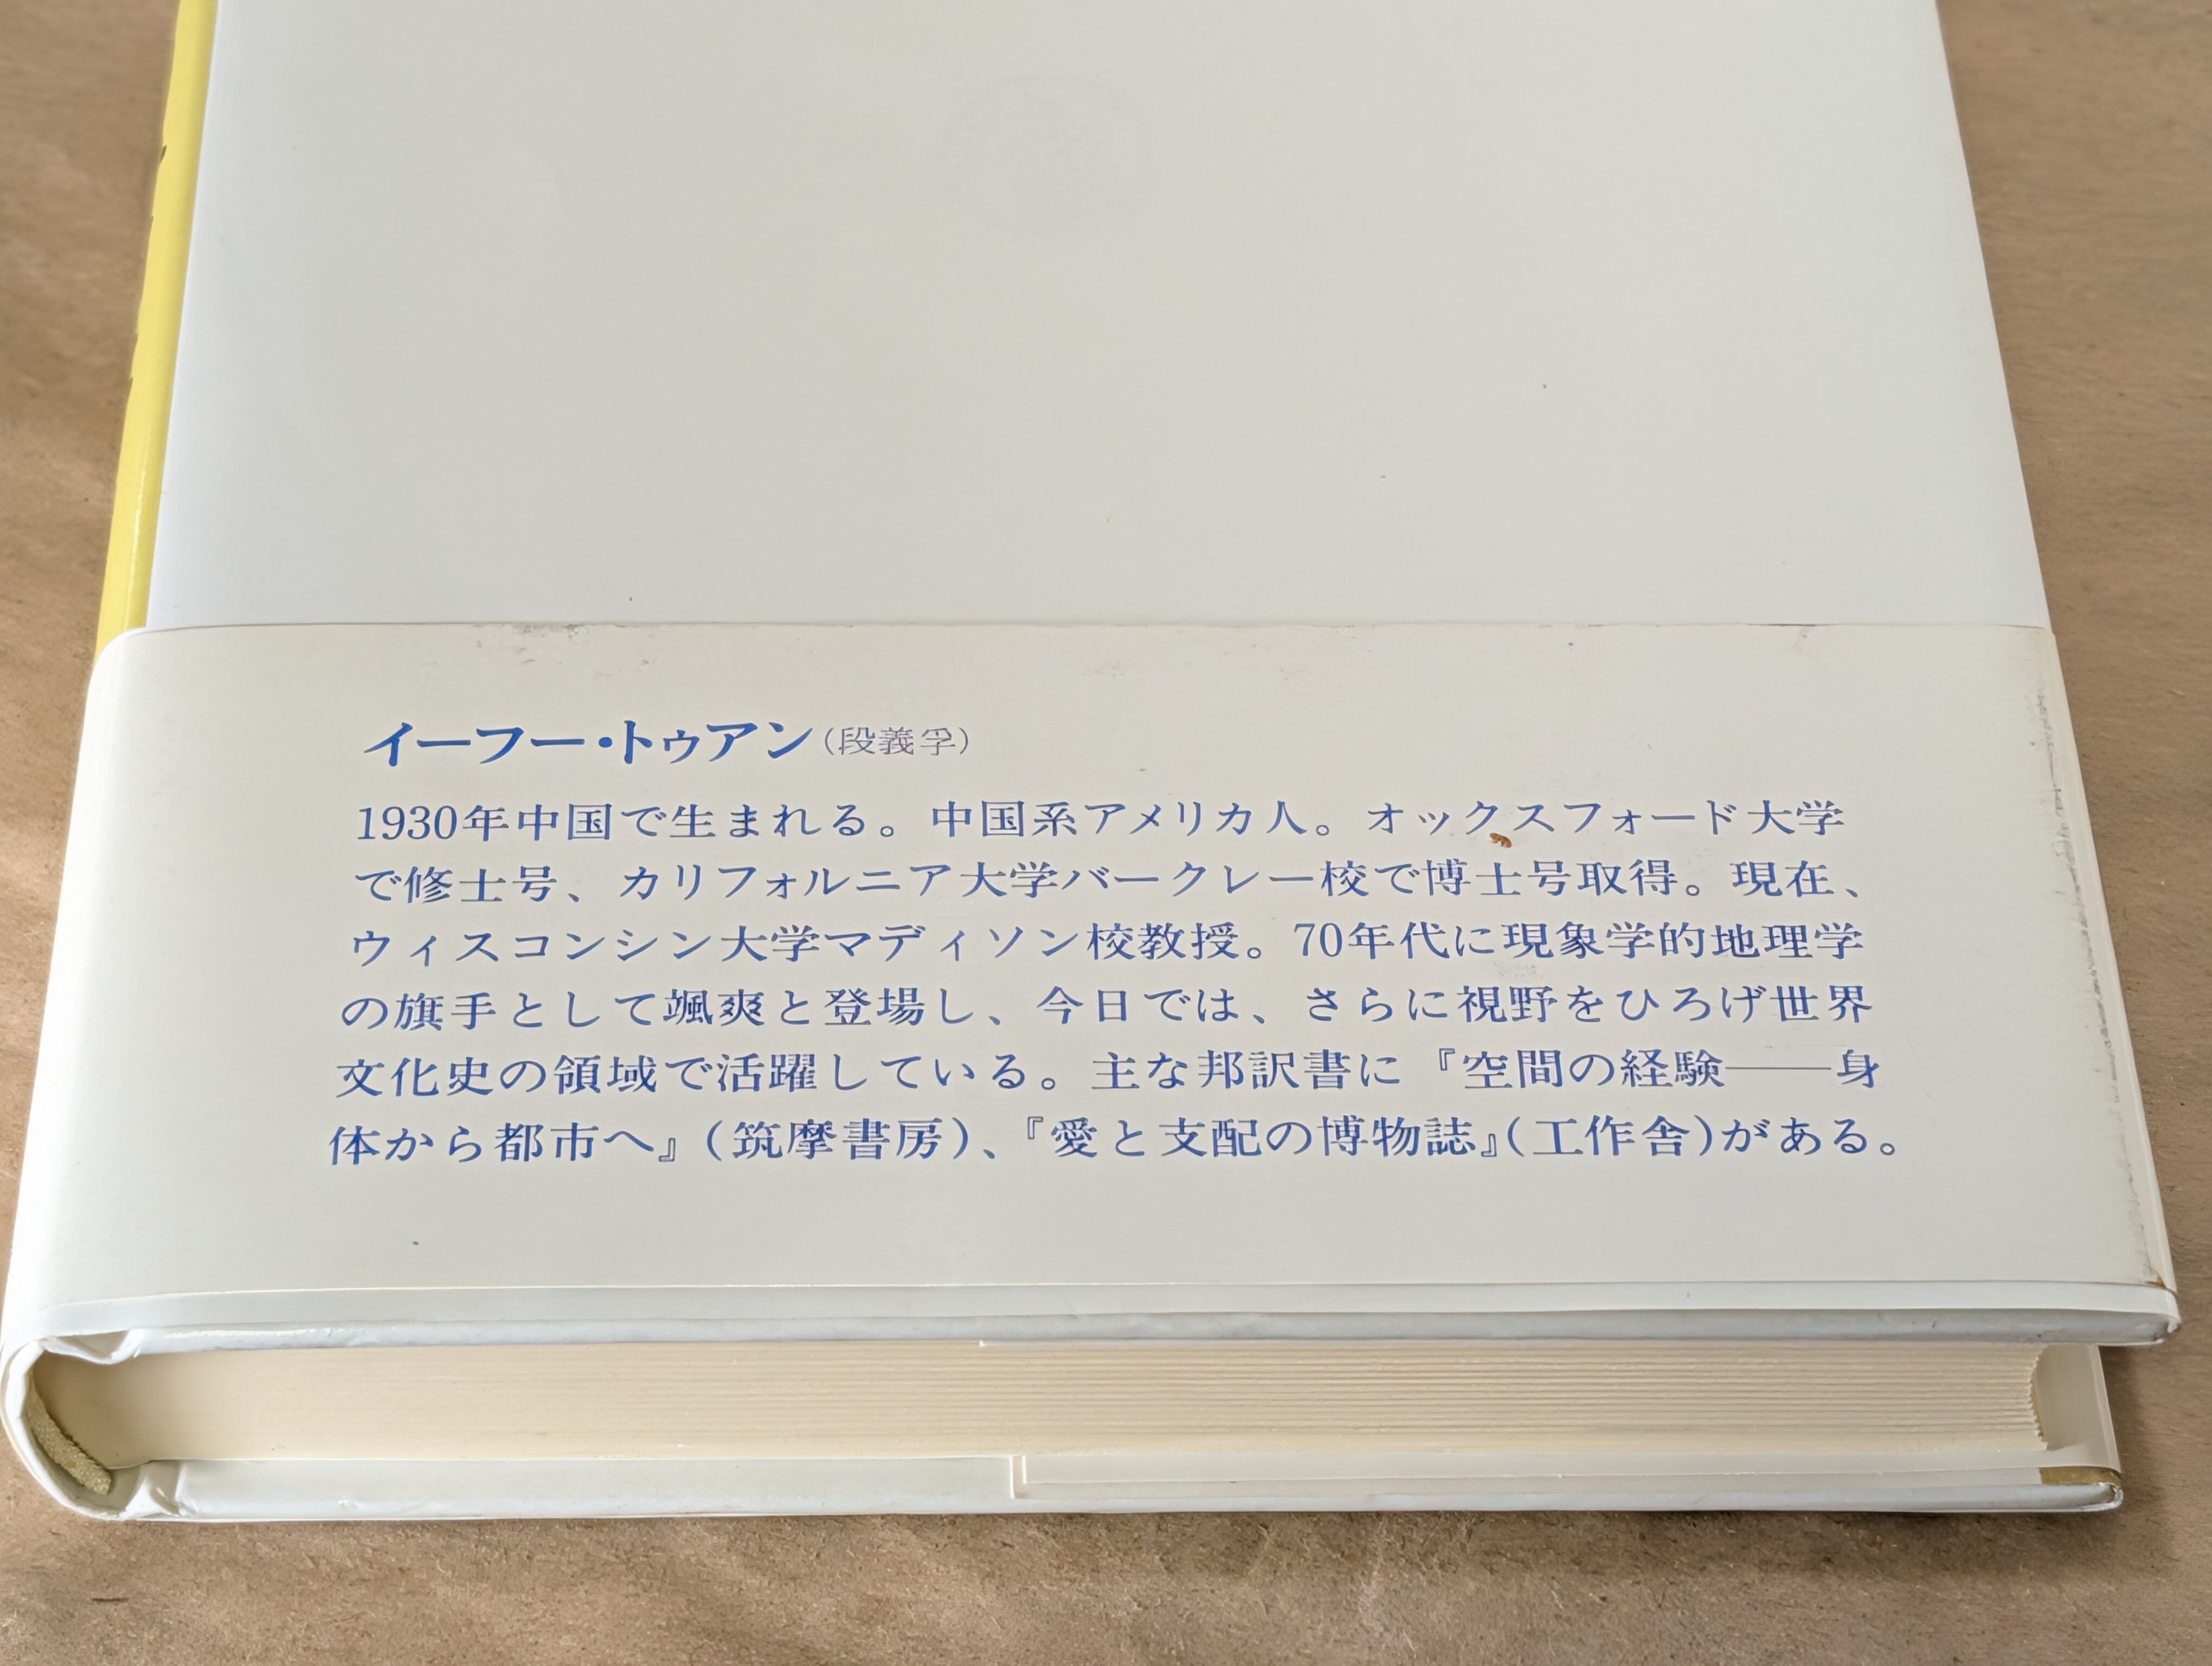 イーフー・トゥアン（段義孚）
1930年中国で生まれる。中国系アメリカ人。オックスフォード大学
で修士号、カリフォルニア大学バークレー校で博士号取得。現在、
ウィスコンシン大学マディソン校教授。70年代に現象学的地理学
の旗手として颯爽と登場し、今日では、さらに視野をひろげ世界
文化史の領域で活躍している。主な邦訳書に『空間の経験――身
体から都市へ』（筑摩書房）、『愛と支配の博物誌』（工作舎）がある。